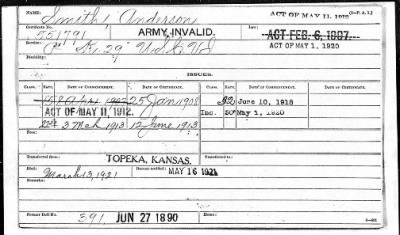 Name: Smith, Anderson ACT OF MAY 11, 1912
Certificate No. 551791 ARMY INVALID. ACT FEB. 6, 1907.
29" U.S.C. Vol ACT OF MAY 1, 1920
ISSUES.
CLASS. RATE. DATE OF COMMENCEMENT. DATE OF CERTIFICATE. CLASS. RATE. DATE OF COMMENCEMENT. DATE OF CERTIFICATE.
25 Jan 1908 32 June 10, 1918
ACT OF MAY 11, 1912. Inc. 50 May 1, 1920
3 Mch 1913 12 June 1913
Transferred from TOPEKA, KANSAS. Transferred to
Died: March 13, 1921 MAY 16 1921
Remarks:
Former Roll No. 391 JUN 27 1890